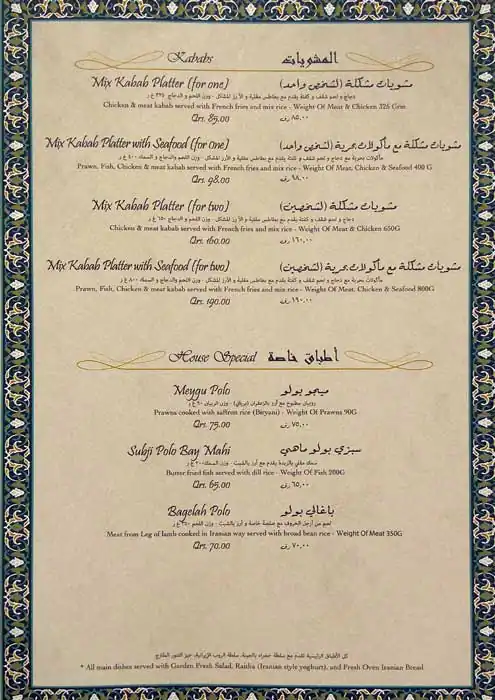 Kababs المشويات
Mix Kabab Platter (for one) مشويات مشكلة (لشخص واحد)
Chicken & meat kabab served with French fries and mix rice - Weight Of Meat & Chicken 325 Grm
Qrs. 85.00 ٨٥,٠٠ رق
Mix Kabab Platter with Seafood (for one) مشويات مشكلة مع مأكولات بحرية (لشخص واحد)
Prawn, Fish, Chicken & meat kabab served with French fries and mix rice - Weight Of Meat, Chicken & Seafood 400 G
Qrs. 98.00 ٩٨,٠٠ رق
Mix Kabab Platter (for two) مشويات مشكلة (لشخصين)
Chicken & meat kabab served with French fries and mix rice - Weight Of Meat & Chicken 650G
Qrs. 160.00 ١٦٠,٠٠ رق
Mix Kabab Platter with Seafood (for two) مشويات مشكلة مع مأكولات بحرية (لشخصين)
Prawn, Fish, Chicken & meat kabab served with French fries and mix rice - Weight Of Meat, Chicken & Seafood 800G
Qrs. 190.00 ١٩٠,٠٠ رق
House Special أطباق خاصة
Meygu Polo ميجو بولو
Prawns cooked with saffron rice (Biryani) - Weight Of Prawns 90G
Qrs. 75.00 ٧٥,٠٠ رق
Subji Polo Bay Mahi سبزي بولو ماهي
Butter fried fish served with dill rice - Weight Of Fish 200G
Qrs. 65.00 ٦٥,٠٠ رق
Bagelah Polo باغالي بولو
Meat from Leg of lamb cooked in Iranian way served with broad bean rice - Weight Of Meat 350G
Qrs. 70.00 ٧٠,٠٠ رق
كل الأطباق الرئيسية تقدم مع سلطة خضراء بالجبنة، سلطة الروب الإيرانية، خبز التنور الطازج
* All main dishes served with Garden Fresh Salad, Raitha (Iranian style yoghurt), and Fresh Oven Iranian Bread